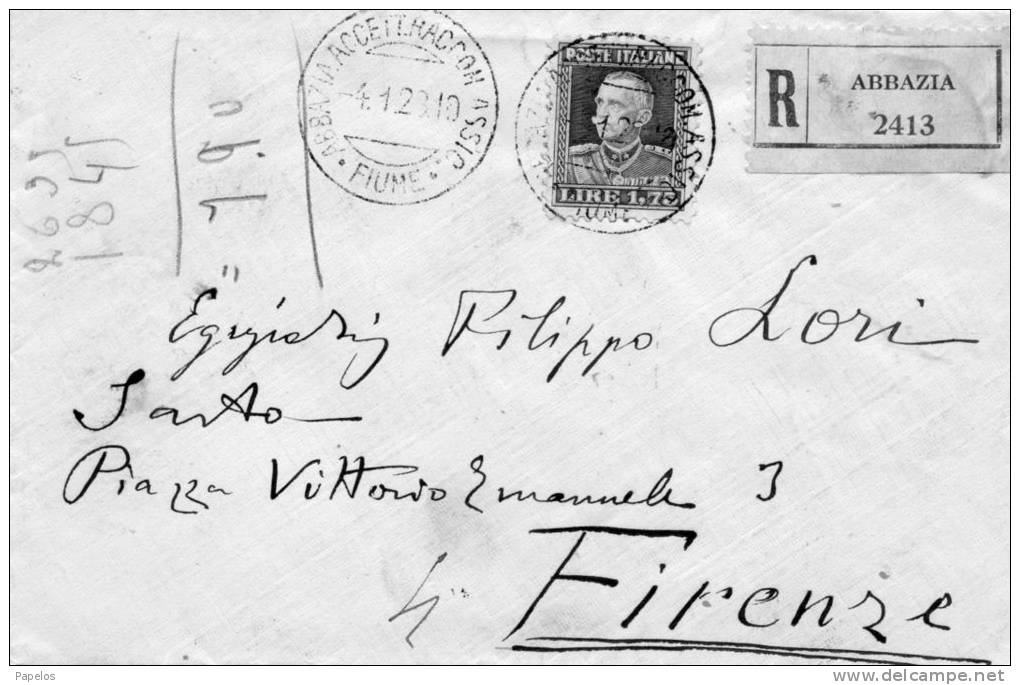 ABBAZIA ACCETT. RACCOM. ASSIC.
4.1.28.10
FIUME
POSTE ITALIANE
LIRE 1.75
R
ABBAZIA
2413
Filippo Lori
Sarto
Piazza Vittorio Emanuele 3
Firenze
Papelos
www.delcampe.net